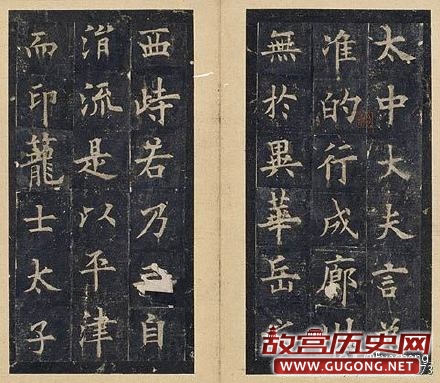 太中大夫言
准的行成廊
無於異華岳
西峙若乃自
涓流是以平津
而印蘢士太子
故宫历史网
GUGONG.NET